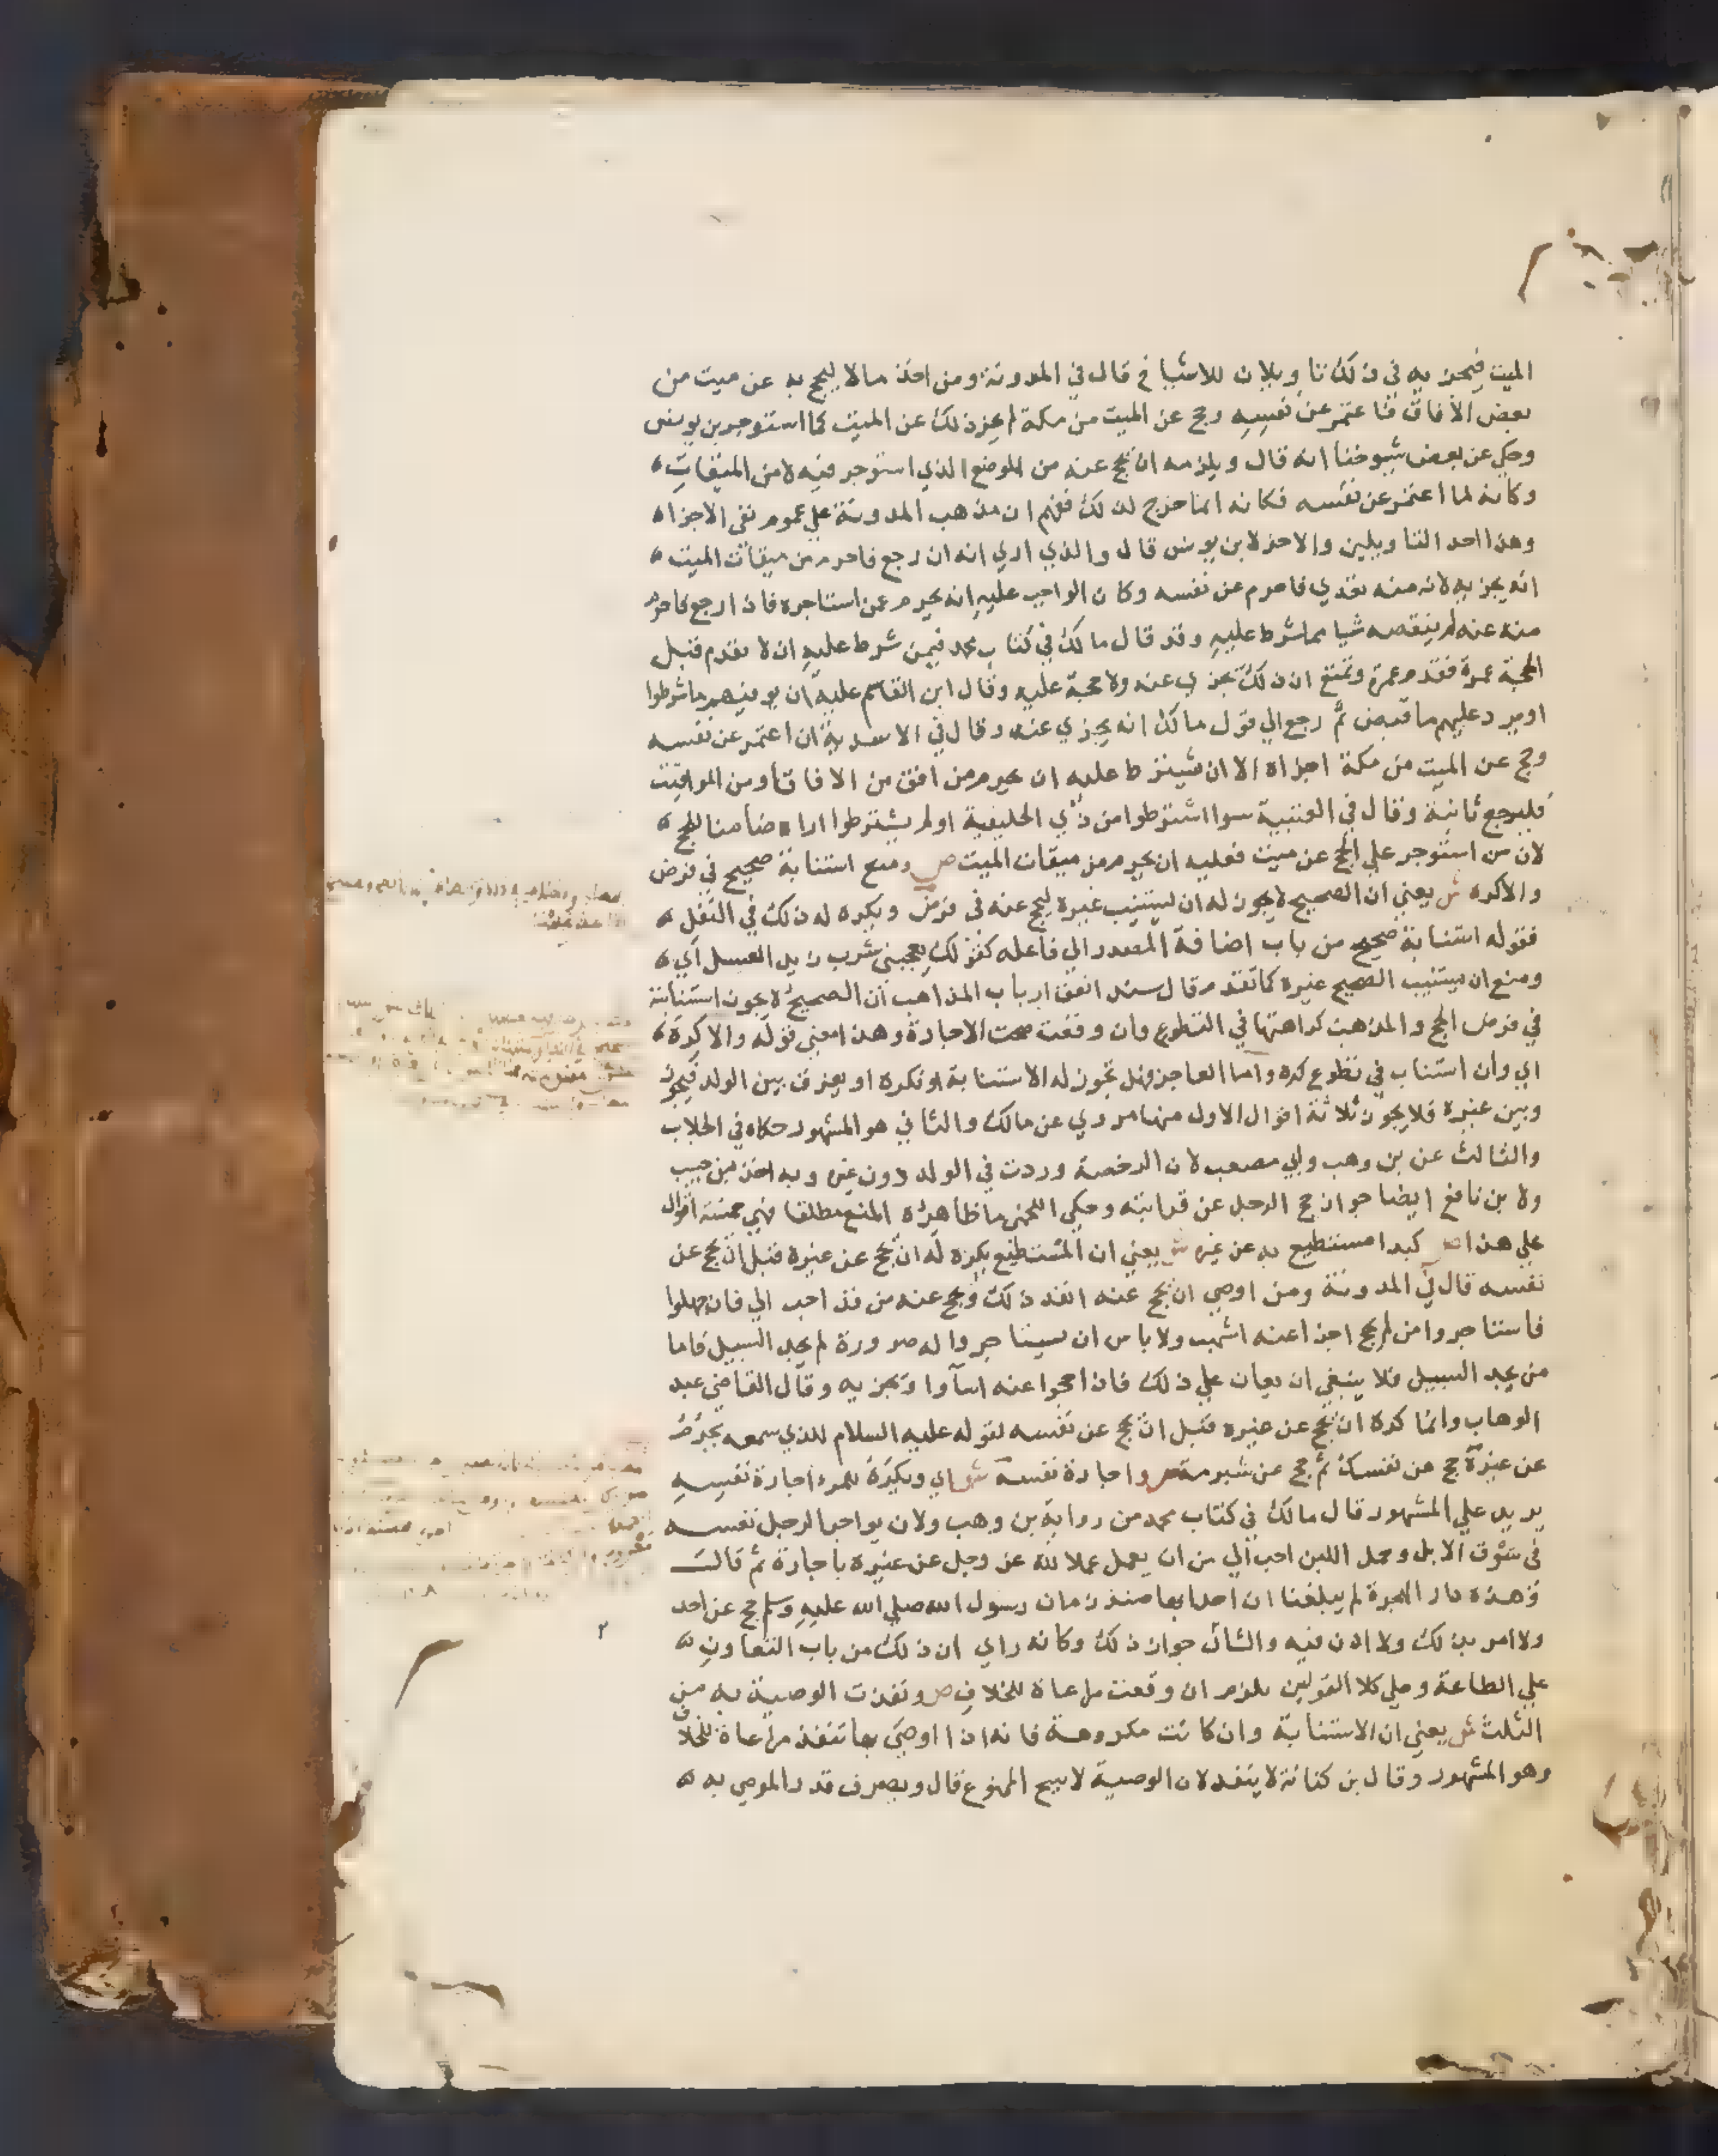 الميت فيجزيه في ذلك تاويلان للاشياخ قال في المدونة ومن اخذ مالا ليحج به عن ميت من
بعض الافاق فاعتمر عن نفسه وحج عن الميت من مكة لم يجز ذلك عن الميت كما استوجر بن يونس
وحكي عن بعض شيوخنا انه قال ويلزمه ان يحج عنه من الموضع الذي استوجر فيه لا من الميقات
وكانه لما اعتمر عن نفسه فكانه انما خرج لذلك ففهم ان مذهب المدونة علي عموم نفي الاجزاء
وهذا احد التاويلين والاخر لابن يونس قال والذي اري انه ان رجع فاحرم من ميقات الميت
انه يجزيه لانه منه تعدي فاحرم عن نفسه وكان الواجب عليه انه يحرم عمن استاجره فاذا رجع فاحرم
منه عنه لم ينقصه شيا مما شرط عليه وقد قال مالك في كتاب محمد فيمن شرط عليه ان لا يقدم قبل
الحجة عمرة فقدم عمرة وتمتع ان ذلك يجزي عنه ولا حجة عليه وقال ابن القاسم عليه ان يوفيهم ما شرطوا
او يرد عليهم ما قبض ثم رجع الي قول مالك انه يجزي عنه وقال في الاسدية ان اعتمر عن نفسه
وحج عن الميت من مكة اجزاه الا ان يشترط عليه ان يحرم من افق من الافاق او من المواقيت
فليرجع ثانية وقال في العتبية سوا اشترطوا من ذي الحليفة او لم يشترطوا اراه ضامنا للحج
لان من استوجر علي الحج عن ميت فعليه ان يحرم من ميقات الميت ص ومنع استنابة صحيح في فرض
والاكره ش يعني ان الصحيح لا يجوز له ان يستنيب غيره ليحج عنه في فرض ويكره له ذلك في النفل
فقوله استنابة صحيح من باب اضافة المصدر الي فاعله كقولك يعجبني شرب زيد العسل اي
ومنع ان يستنيب الصحيح غيره كما تقدم قال سند اتفق ارباب المذاهب ان الصحيح لا يجوز استنابته
في فرض الحج والمذهب كراهتها في التطوع وان وقعت صحت الاجارة وهذا معني قوله والا كره
اي وان استناب في تطوع كره واما العاجز فهل تجوز له الاستنابة او تكره او يفرق بين الولد فيجوز
وبين غيره فلا يجوز ثلاثة اقوال الاول منها مروي عن مالك والثاني هو المشهور حكاه في الجلاب
والثالث عن بن وهب وابي مصعب لان الرخصة وردت في الولد دون غيره وبه اخذ بن حبيب
ولابن نافع ايضا جواز حج الرجل عن قرابته وحكي اللخمي ما ظاهره المنع مطلقا فهي خمسة اقوال
علي هذا ص كبدا مستطيع به عن غيره ش يعني ان المستطيع يكره له ان يحج عن غيره قبل ان يحج عن
نفسه قال في المدونة ومن اوصي ان يحج عنه انفذ ذلك ويحج عنه من قد احب الي فان جهلوا
فاستاجروا من لم يحج اجزا عنه اشهب ولا باس ان يستاجروا له صرورة لم يجد السبيل فاما
من يجد السبيل فلا ينبغي ان يعان علي ذلك فاذا حجوا عنه اسآوا ويجزيه وقال القاضي عبد
الوهاب وانما كره ان يحج عن غيره قبل ان يحج عن نفسه لقوله عليه السلام للذي سمعه يحرم
عن غيره حج عن نفسك ثم حج عن شبرمة ص واجارة نفسه ش اي ويكره للمرء اجارة نفسه
يريد علي المشهور قال مالك في كتاب محمد من رواية بن وهب ولان يواجر الرجل نفسه
في سوق الابل وحمل اللبن احب الي من ان يعمل عملا لله عز وجل عن غيره باجارة ثم قال
وهذه دار الهجرة لم يبلغنا ان احدا بها منذ زمان رسول الله صلي الله عليه وسلم حج عن احد
ولا امر بذلك ولا اذن فيه والشاذ جواز ذلك وكانه راي ان ذلك من باب التعاون
علي الطاعة وعلي كلا القولين يلزم ان وقعت مراعاة للخلاف ص ونفذت الوصية به من
الثلث ش يعني ان الاستنابة وان كانت مكروهة فانه اذا اوصي بها تنفذ مراعاة للخلاف
وهو المشهور وقال بن كنانة لا ينفذ لان الوصية لا تبيح الممنوع قال ويصرف قدر الموصي به